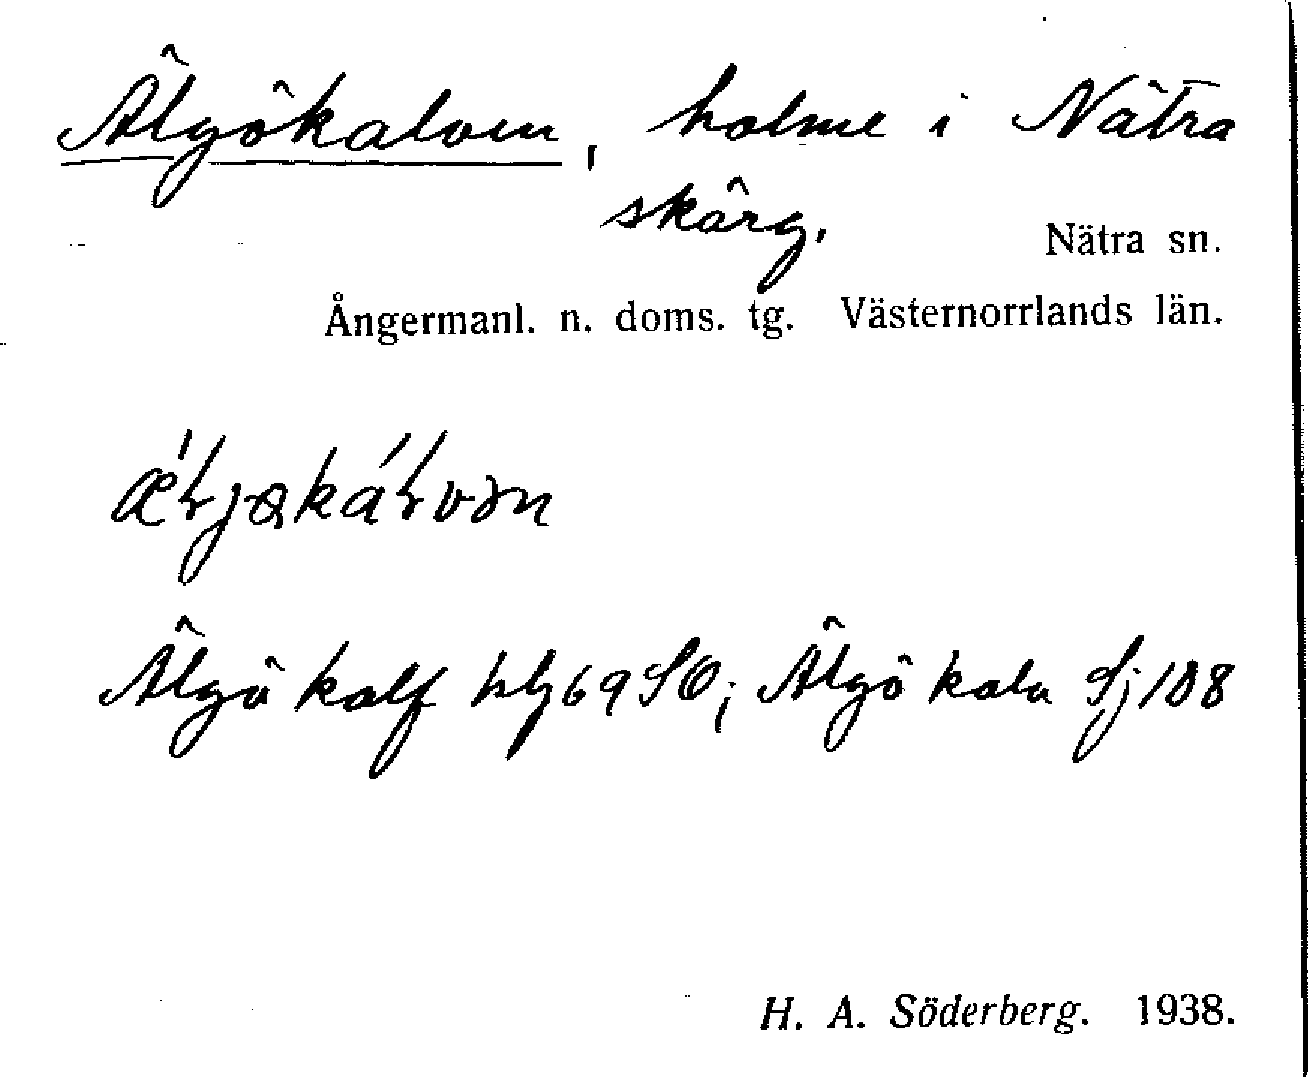 Älgökalven, holme i Nätra
skärg.
Nätra sn.
Ångermanl. n. doms. tg. Västernorrlands län.
Älgö kalf 69 SO; Älgö kala Sj 108
H. A. Söderberg. 1938.